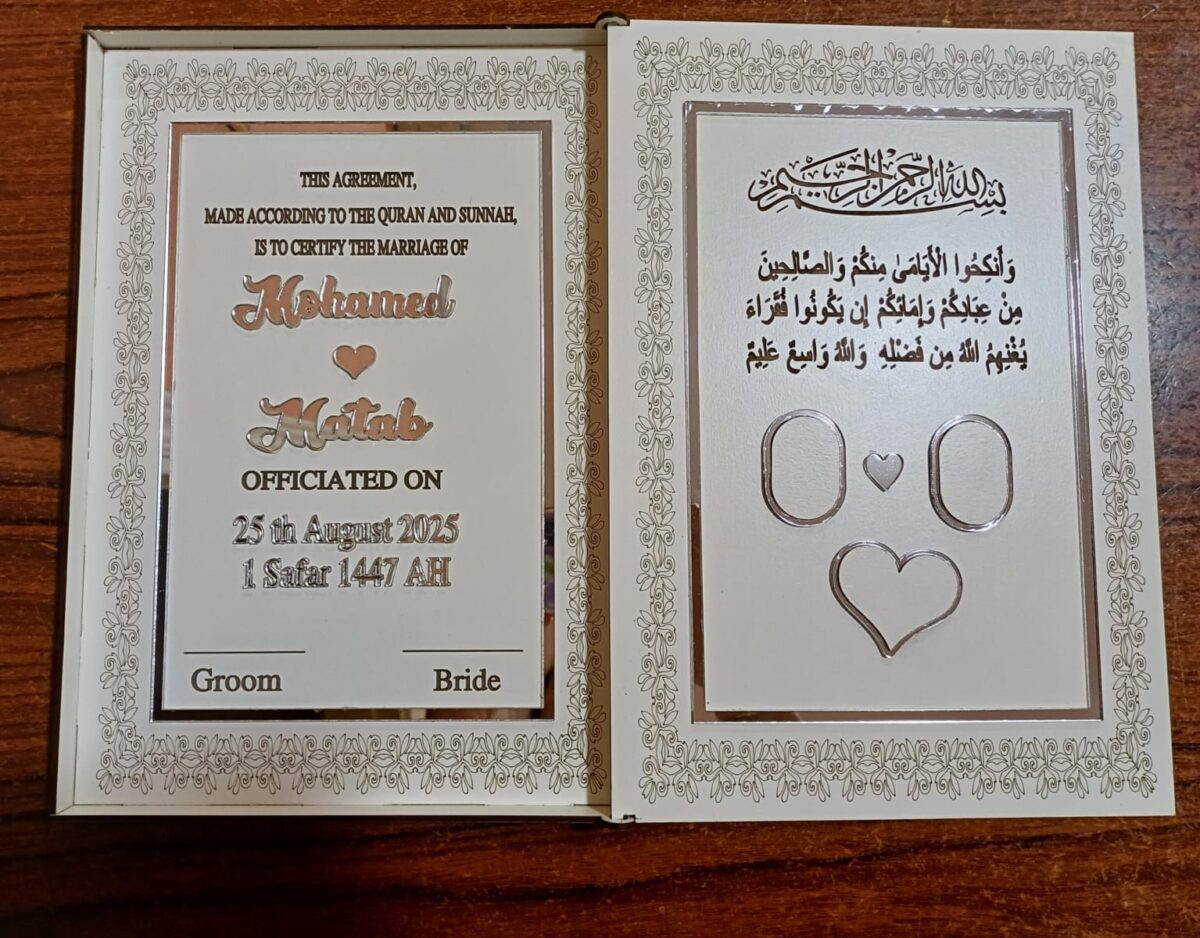 THIS AGREEMENT,
MADE ACCORDING TO THE QURAN AND SUNNAH,
IS TO CERTIFY THE MARRIAGE OF
Mohamed
Matab
OFFICIATED ON
25 th August 2025
1 Safar 1447 AH
Groom
Bride
بِسْمِ اللَّهِ الرَّحْمَنِ الرَّحِيمِ
وَأَنكِحُوا الْأَيَامَىٰ مِنكُمْ وَالصَّالِحِينَ
مِنْ عِبَادِكُمْ وَإِمَائِكُمْ إِن يَكُونُوا فُقَرَاءَ
يُغْنِهِمُ اللَّهُ مِن فَضْلِهِ وَاللَّهُ وَاسِعٌ عَلِيمٌ